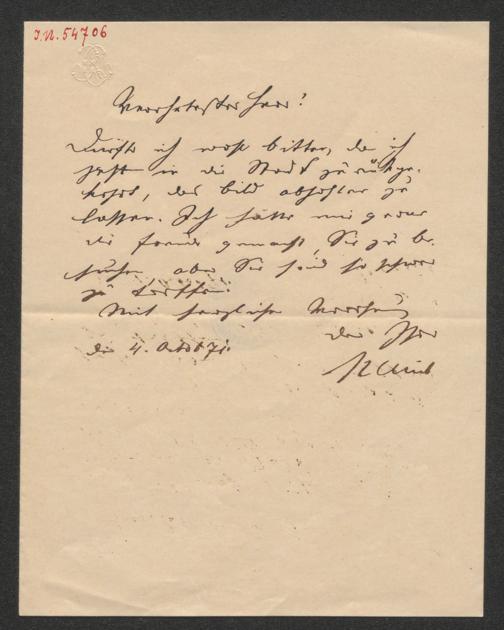 I.N. 54706
Verehrtester Herr!
Dürfte ich wohl bitten, da ich
jetzt in die Stadt zurückge-
kehrt, das Bild abholen zu
lassen. Ich hätte mir gerne
die Freude gemacht, Sie zu be-
suchen aber Sie sind so schwer
zu treffen.
Mit herzlicher Verehrung
der Ihre
den 4. Octob 71.